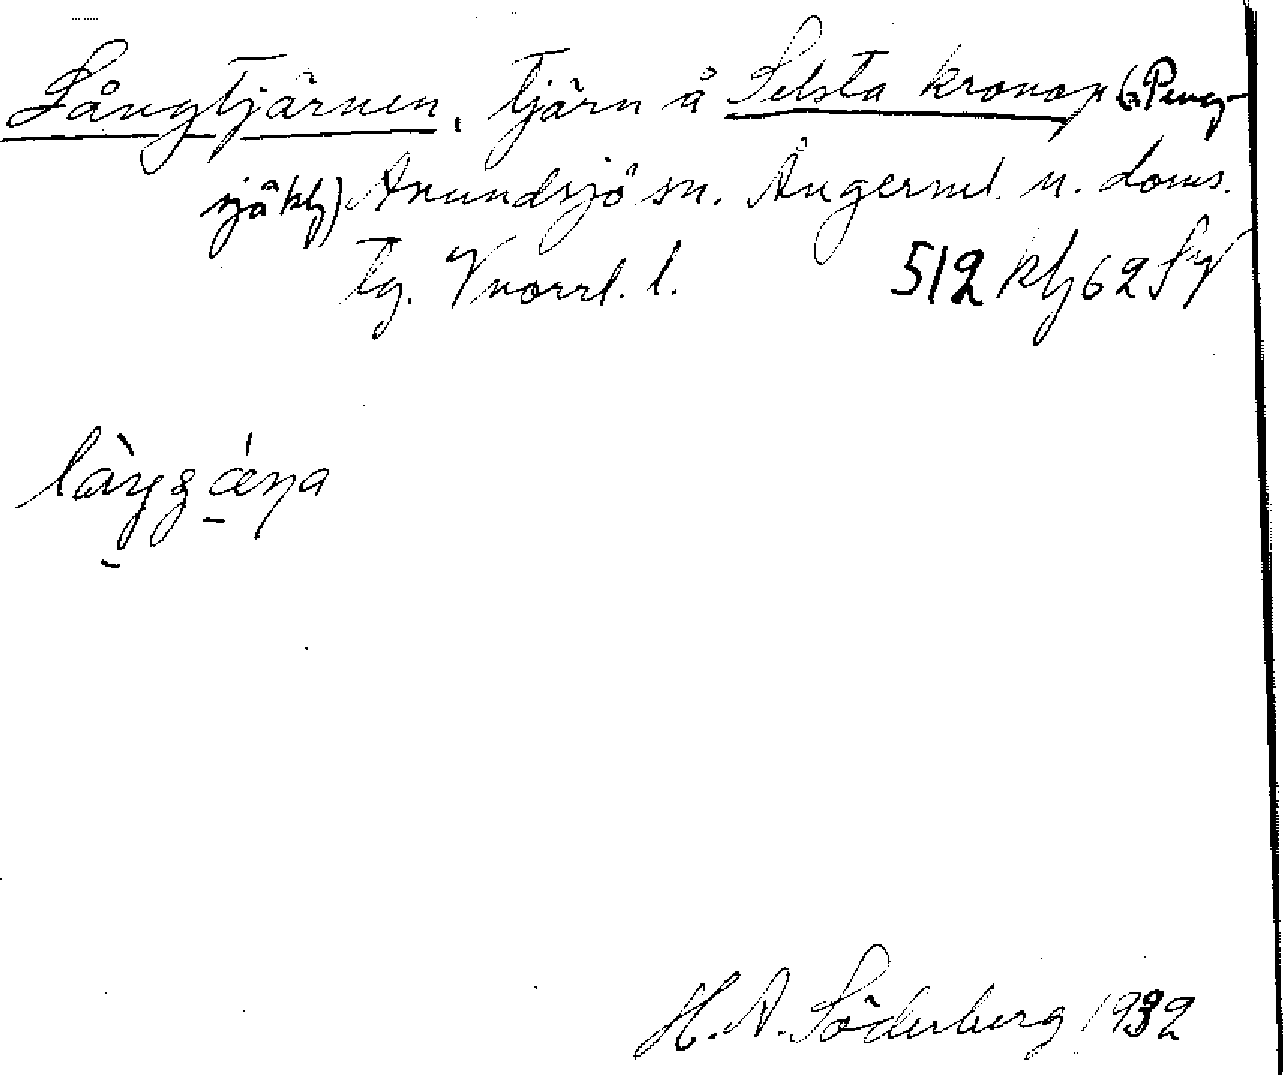 Långtjärnen, tjärn å Selsta kronop (a Peng-
sjö kbg) Anundsjö sn. Ångerml. n. doms.
tg. Vnorrl. l. 512 kbg 62
H. A. Söderberg 1932